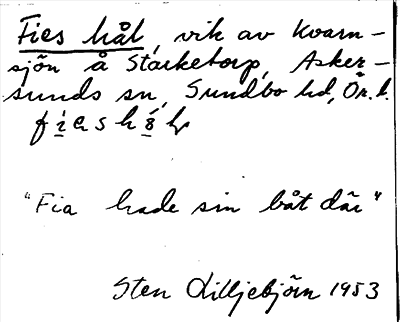 Fies hål, vik av Kvarn-
sjön å Stärketorp, Asker-
sunds sn, Sundbo hd, Ör. l.
"Fia hade sin båt där"
Sten Lilljebjörn 1953